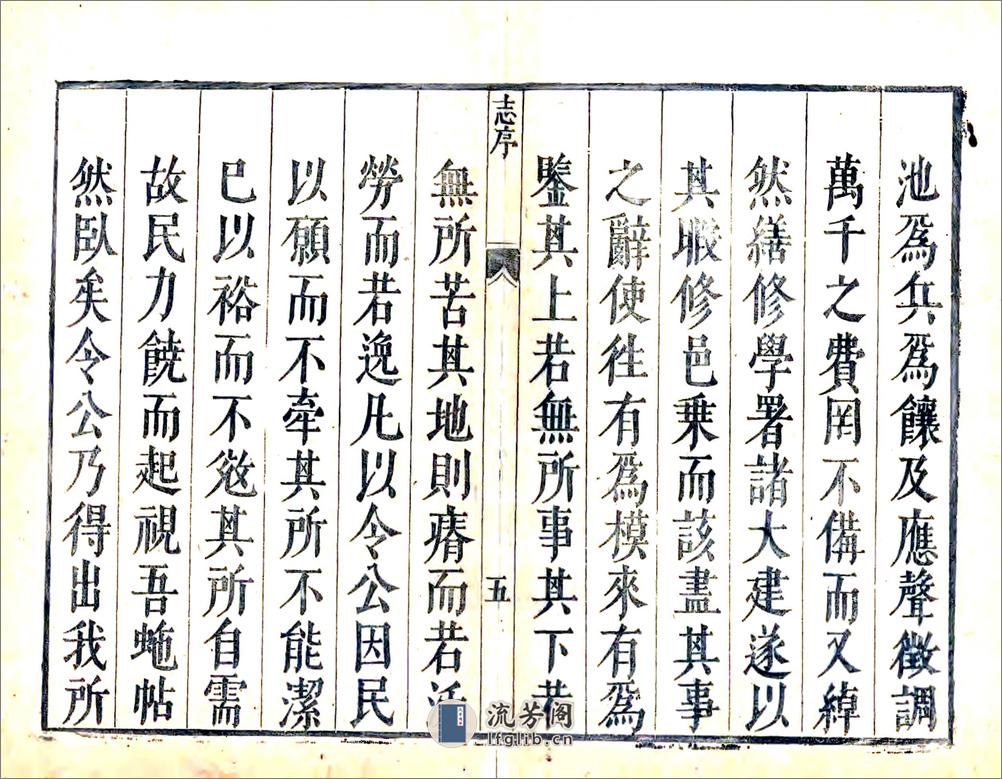 池爲兵爲饟及應聲徵調
萬千之費罔不備而又綽
然繕修學署諸大建遂以
其暇修邑乗而該盡其事
之辭使徃有爲模來有爲
鑒其上若無所事其下若
志序
五
無所苦其地則瘠而若
勞而若逸凡以令公因民
以願而不牽其所不能潔
已以裕而不愆其所自需
故民力饒而起視吾虵帖
然臥矣令公乃得出我所
流芳阁
lfglib.cn